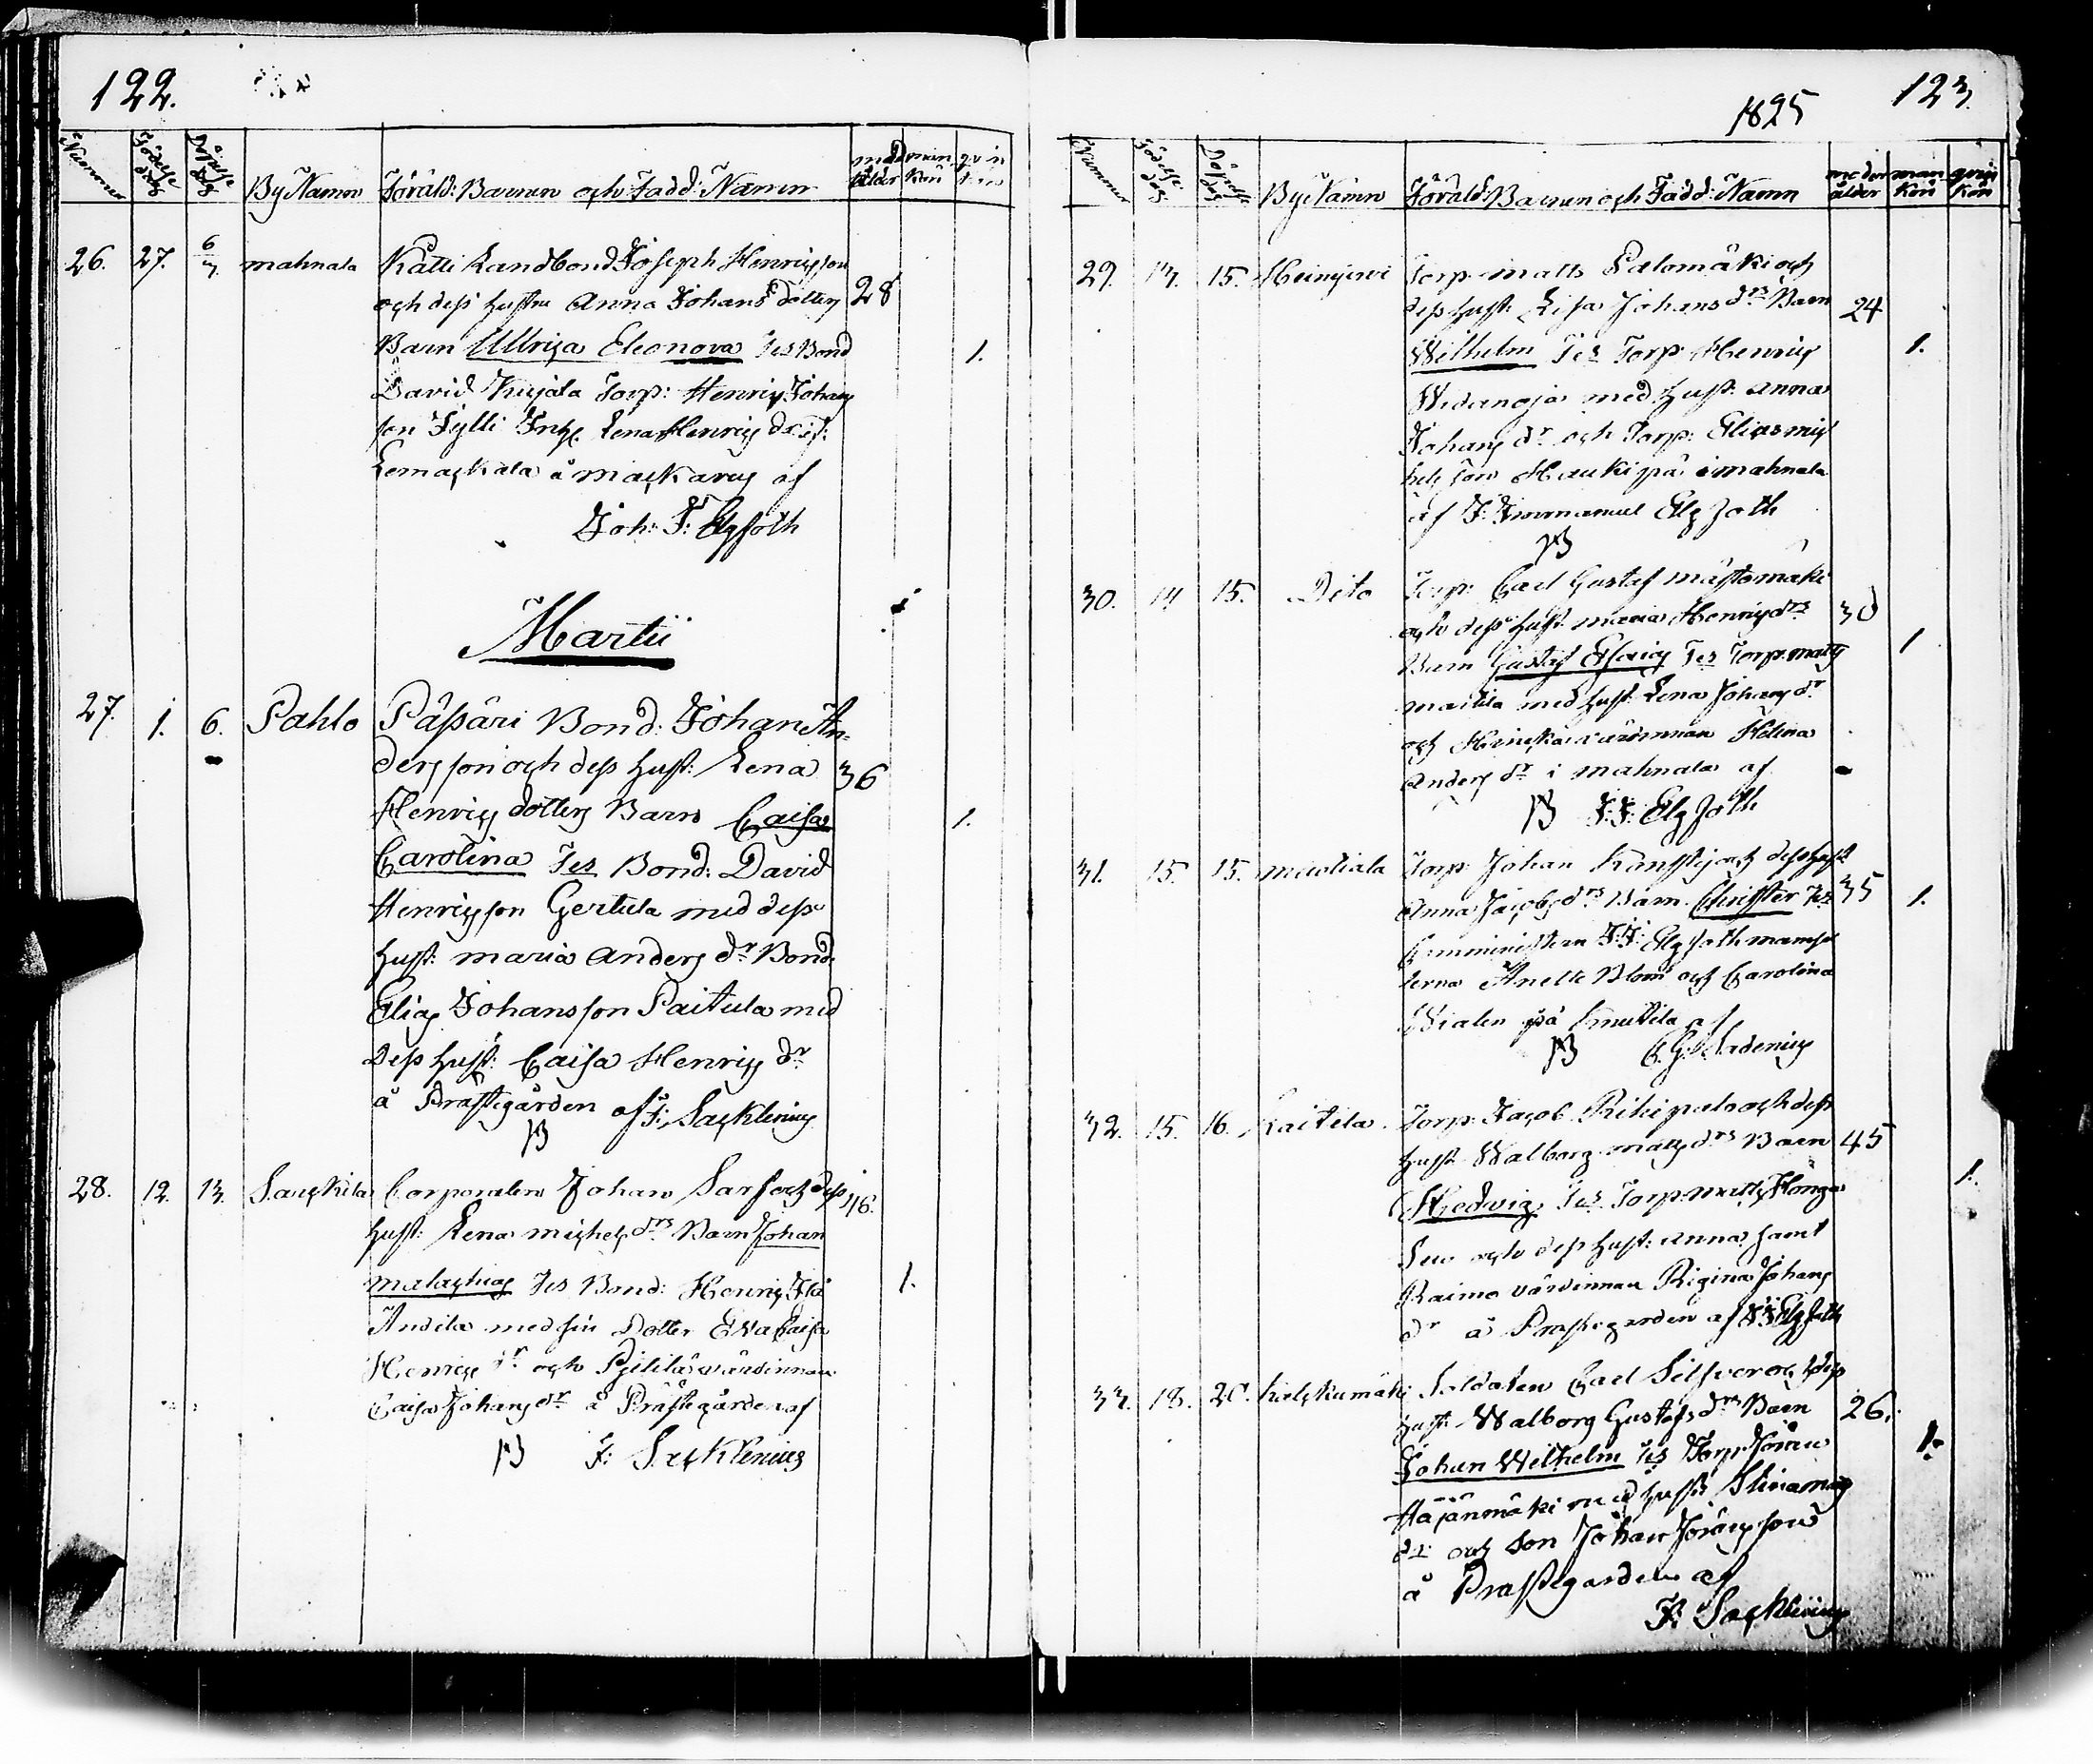 122.
Nummer Födelse dag Döpelse dag By Namn Föräld: Barnen och Fadd: Namn mod ålder man kön qvin kön
26. 27. 6/3 mahnala Kätti Landbond Joseph Henricsson
och dess hustru Anna Johans dotters 28
Barn Ullrica Eleonora Tes Bond 1.
David Kujala Torp: Henric Johans
son Jylli Lena Henrics dr:
Lemackala a mackarus af
Joh: F: Elgfoth
Martii
27. 1. 6. Pahlo Päsäri Bond: Johan An-
dersson och dess hust: Lena 36
Henrics dotters Barn Caisa 1.
Carolina Tes Bond: David
Henricsson Gertula med dess
hust: maria Anders dr Bond:
Elias Johansson Paitula med
dess hust: Caisa Henrics dr
å Prästegården af F: Sacklenius
28. 12. 13. Sauckila Corporalen Johan Sarf och dess
hust: Lena michels drs Barn Johan
malachias Tes Bond: Henric 1.
Andila med sin Dotter Eva Caisa
Henrics dr och värdinnan
Caisa Johans dr å Prästegården af
F: Sacklenius
1825 123.
Nummer Födelse dag Döpelse dag By Namn Föräld: Barnen och Fadd: Namn moder ålder man kön qvin kön
29. 13. 15. Heinijervi Torp matts Palomäki och
dess hust: Lisa Johans drs Barn 24
Wilhelm Tes Torp Henric 1.
Widanoja med hust: Anna
Johans dr och Torp: Elias mic
hels son Haukipä i mahnala
af J: Immanuel Elgfoth
30. 14 15. Dito Torp: Carl Gustaf mästomäki
och dess hust: maria Henrics drs 30
Barn Gustaf Esaias Tes Torp: matts 1
mattila med hust: Lena Johans dr
och värdinnan Helena
Anders dr i mahnala af
J: J: Elgfoth
31. 15. 15. Torp Johan och dess hust
Anna Jacobs drs Barn Christer Tes 35 1.
Comministern J: J: Elgfoth mamse
lerna Anette Blom och Carolina
på Knutila af
32. 15. 16. Kaitila Torp: Jacob och dess
hust Walborg matts drs Barn 45
Hedvig Tes Torp: matts Honga 1.
Suo och dess hust: Anna samt
Raimo värdinnan Regina Johans
dr å Prästegården af J: J: Elgfoth
33. 18. 20. Soldaten Carl Silfver och dess
hust: Walborg Gustafs drs Barn 26.
Johan Wilhelm Tes Torp Jöran 1.
Häjänmäki med hust:
dr och son Johan Jöransson
å Prästegården af
F: Sacklenius